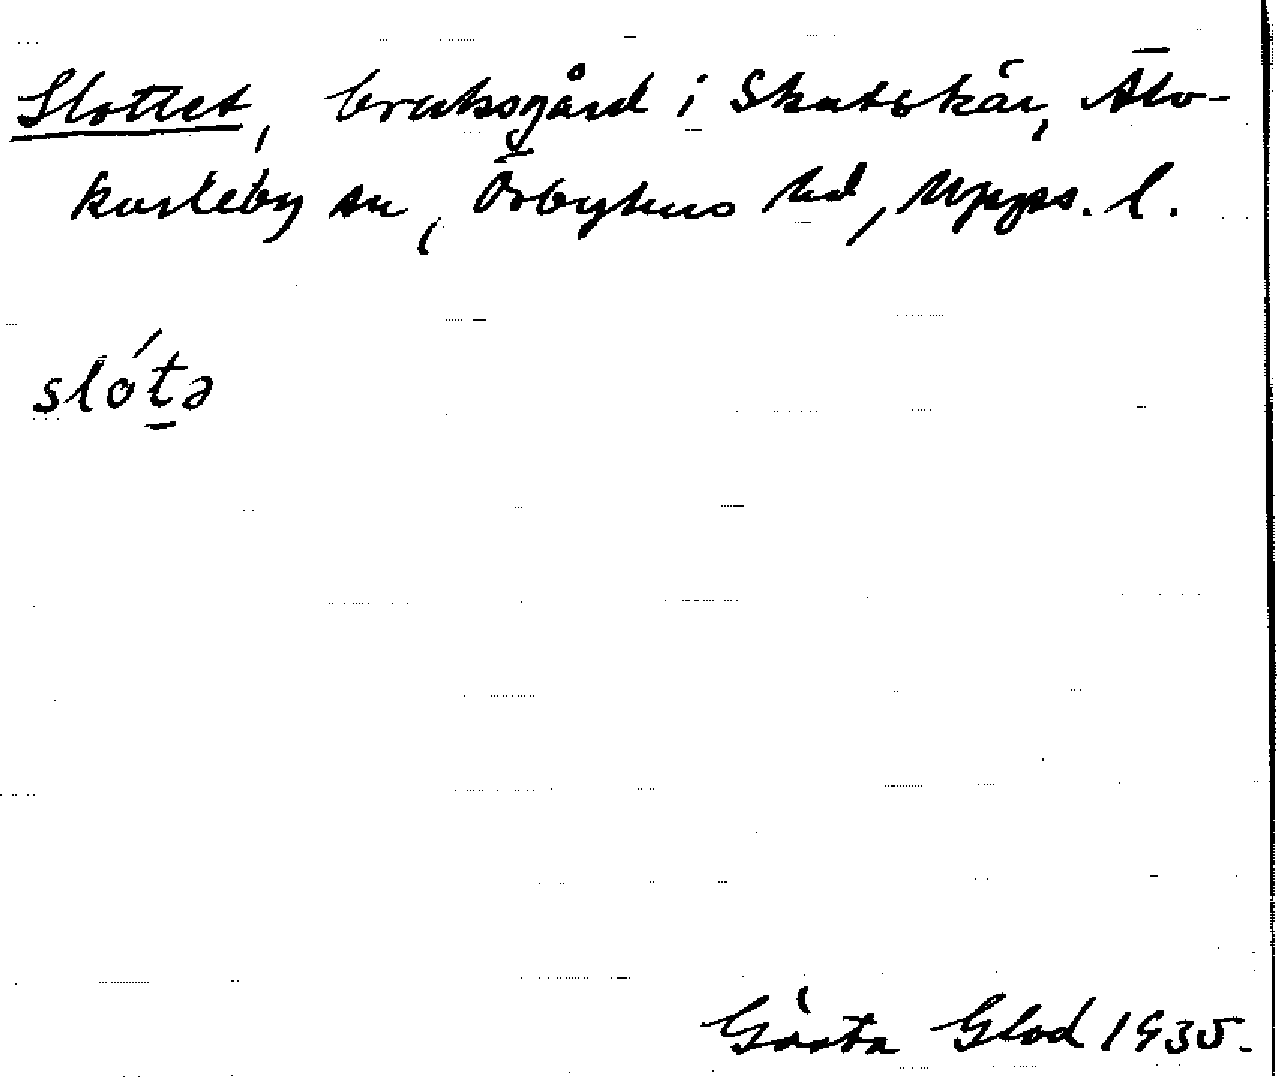 Slottet, bruksgård i Skutskär, Älv-
karleby sn, Örbyhus hd, Upps. l.
slót̲ə
Gösta Glad 1935.